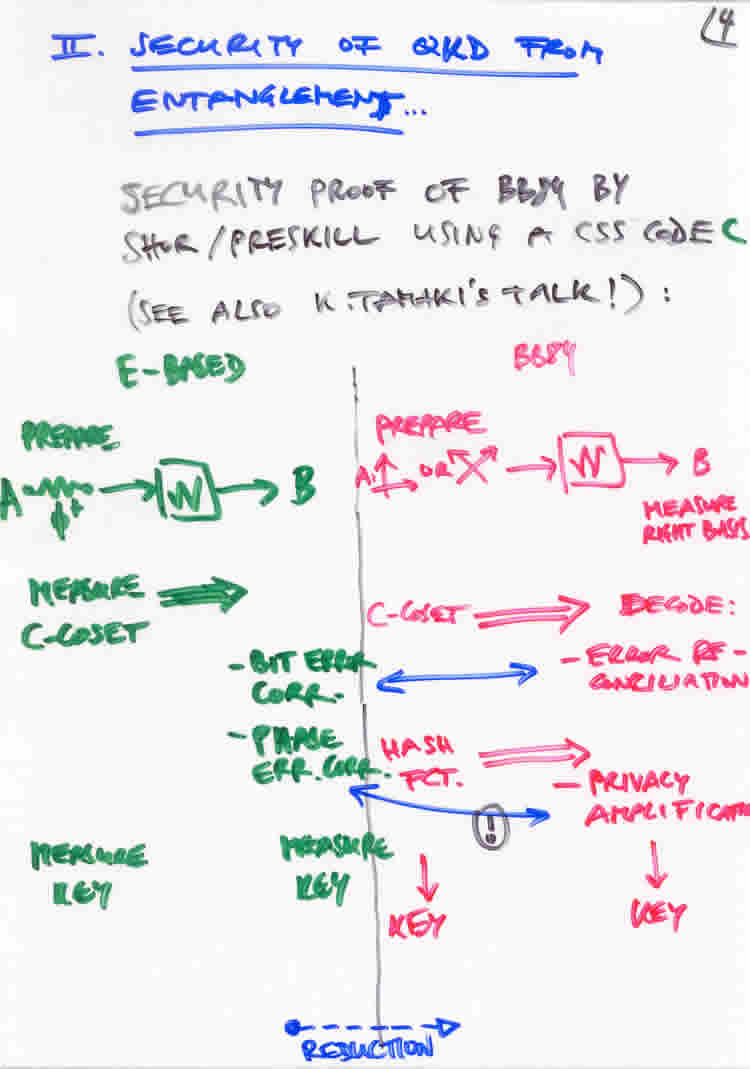 14
II. SECURITY OF QKD FROM
ENTANGLEMENT...
SECURITY PROOF OF BB84 BY
SHOR/PRESKILL USING A CSS CODE C
(SEE ALSO K. TAMAKI'S TALK!):
E-BASED
PREPARE
A
W
B
MEASURE
C-COSET
- BIT ERROR
CORR.
- PHASE
ERR. CORR.
MEASURE
KEY
MEASURE
KEY
BB84
PREPARE
A: OR
W
B
MEASURE
RIGHT BASIS
C-COSET
DECODE:
- ERROR RE-
CONCILIATION
HASH
FCT.
- PRIVACY
AMPLIFICATIO
!
KEY
KEY
REDUCTION